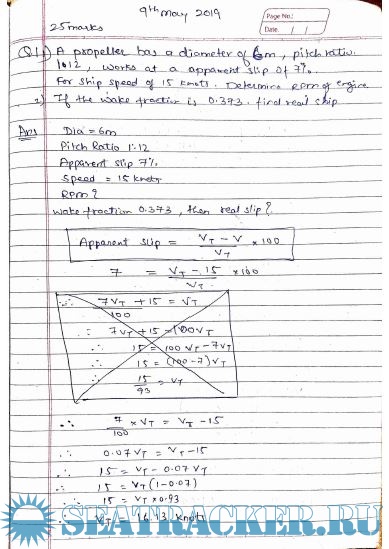 9th May 2019
Page No.:
Date:
25 marks
Q1) A propeller has a diameter of 6m, pitch ratio
1.12, works at a apparent slip of 7%.
For ship speed of 15 knots. Determine RPM of engine
2) If the wake fraction is 0.373. find real slip
Ans Dia = 6m
Pitch Ratio 1.12
Apparent slip 7%
Speed = 15 knots
RPM?
wake fraction 0.373, then real slip?
Apparent slip = VT - V / VT × 100
7 = VT - 15 / VT × 100
∴ 7VT + 15 = VT
100
∴ 7VT + 15 = 100VT
∴ 15 = 100VT - 7VT
∴ 15 = (100-7)VT
∴ 15/93 = VT
∴ 7/100 × VT = VT - 15
∴ 0.07VT = VT - 15
∴ 15 = VT - 0.07VT
∴ 15 = VT(1-0.07)
∴ 15 = VT × 0.93
∴ VT = 16.13 knots
SEATRACKER.RU